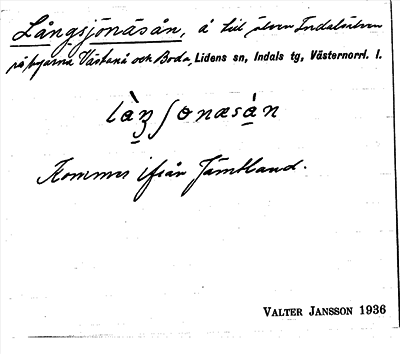 Långsjönäsån, å till älven Indalsälven
på byarna Västanå och Boda, Lidens sn, Indals tg, Västernorrl. l.
làꜧʃonæsàn
Kommer ifrån Jämtland.
VALTER JANSSON 1936